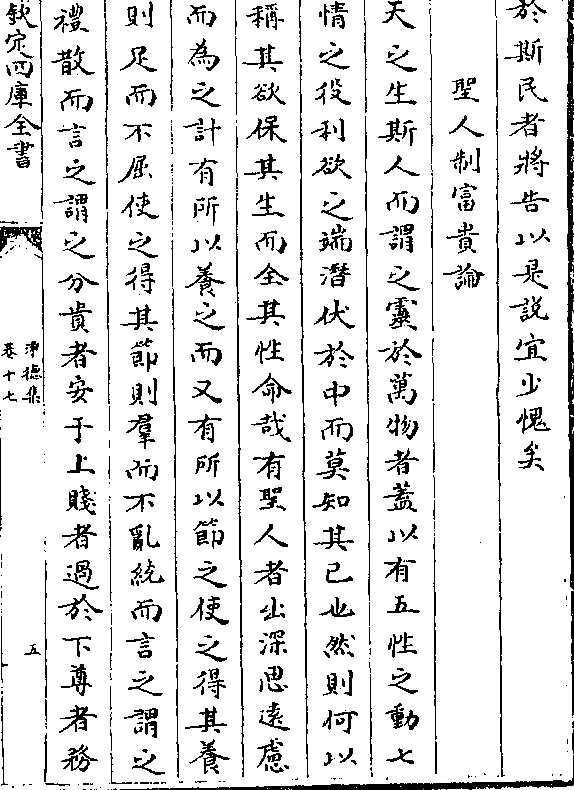 於斯民者將告以是説宜少愧矣
聖人制富貴論
天之生斯人而謂之靈於萬物者蓋以有五性之動七
情之役利欲之端潛伏於中而莫知其已也然則何以
稱其欲保其生而全其性命哉有聖人者出深思遠慮
而為之計有所以養之而又有所以節之使之得其養
則足而不屈使之得其節則羣而不亂統而言之謂之
禮散而言之謂之分貴者安于上賤者過於下尊者務
欽定四庫全書
淨德集
卷十七
五